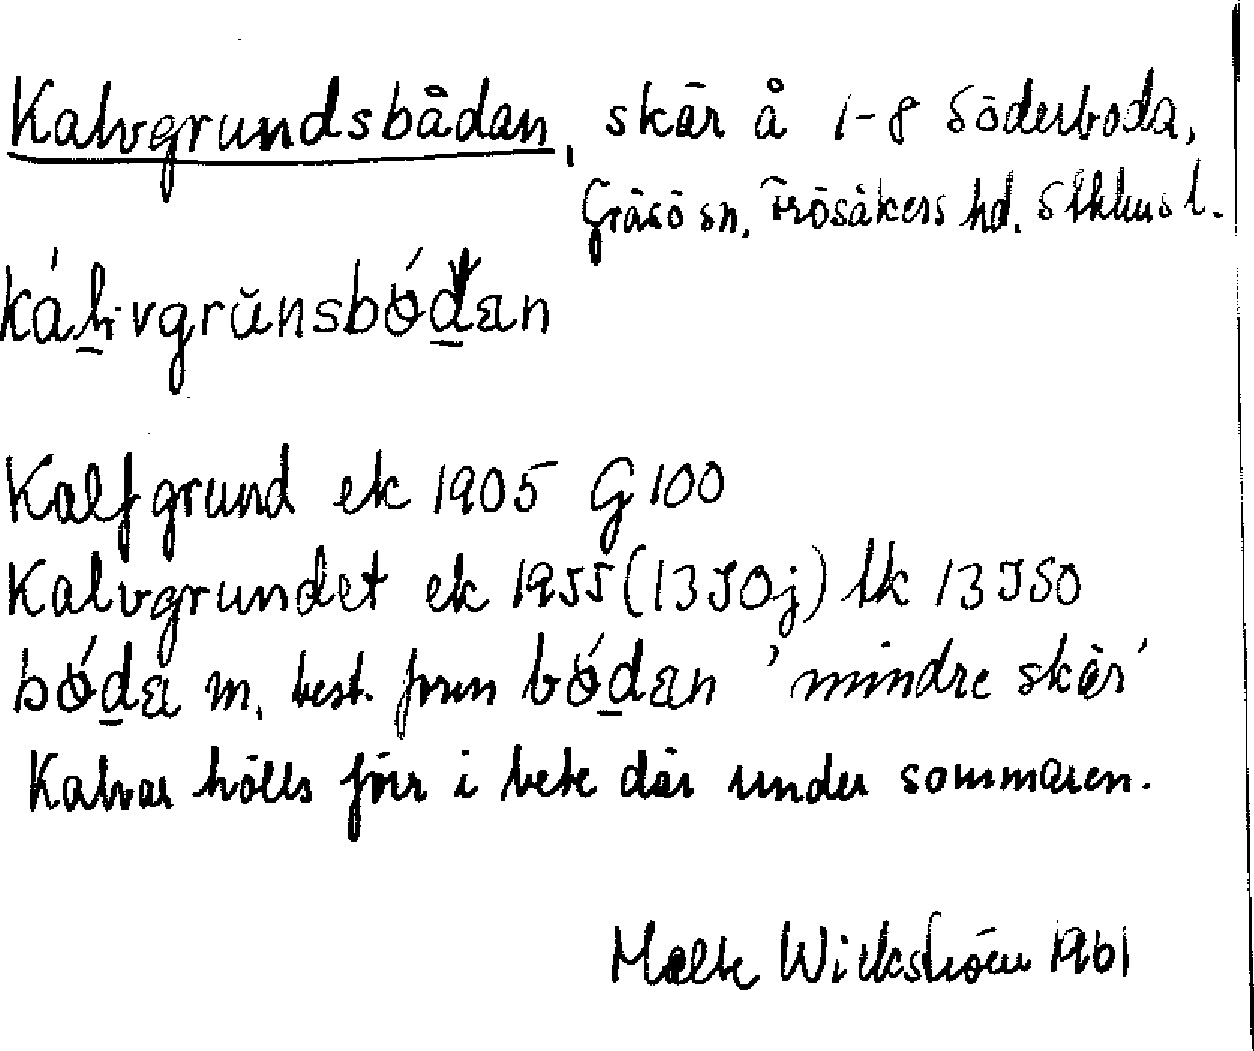 Kalvgrundsbådan, skär å 1-8 Söderboda,
Gräsö sn, Frösåkers hd. Sthlms l.
Kalfgrund ek 1905 G 100
Kalvgrundet ek 1955 (13J0j) tk 13JSO
bǿda m. best. form bǿdan 'mindre skär'
Kalvar hölls förr i bete där under sommaren.
Malte Wickström 1961